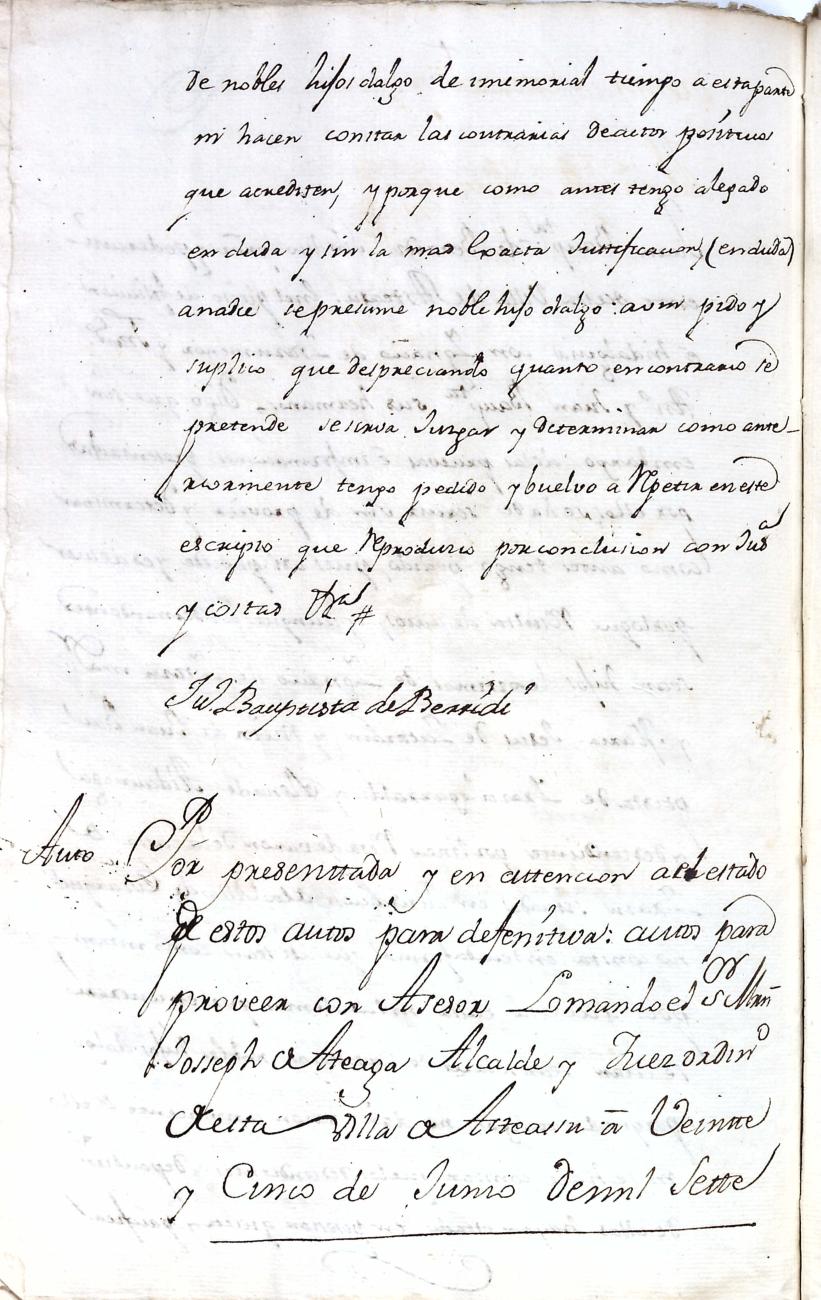 de nobles hijos dalgo de imemorial tiempo a esta parte
ni hacen constar las contrarias de actos positivos
que acrediten, y porque como antes tengo alegado
en duda y sin la mas exacta Justificacion, (en duda)
a nadie se presume noble hijo dalgo: a vm pido y
suplico que despreciando quanto en contrario se
pretende se sirva Juzgar y determinar como ante-
riormente tengo pedido y buelvo a Repetir en este
escripto que Reproduzco por conclusion con Jus.a
y costas #
Ju. Bauptista de Berridi
Auto Por presenttada y en attencion a el estado
de estos autos para defenitiva: autos para
proveer con Asesor Lo mando el S.or Mrn
Josseph de Ateaga Alcalde y Juez ordin.o
de esta Villa de Asteassu â Veintte
y Cinco de Junio de mil Sette